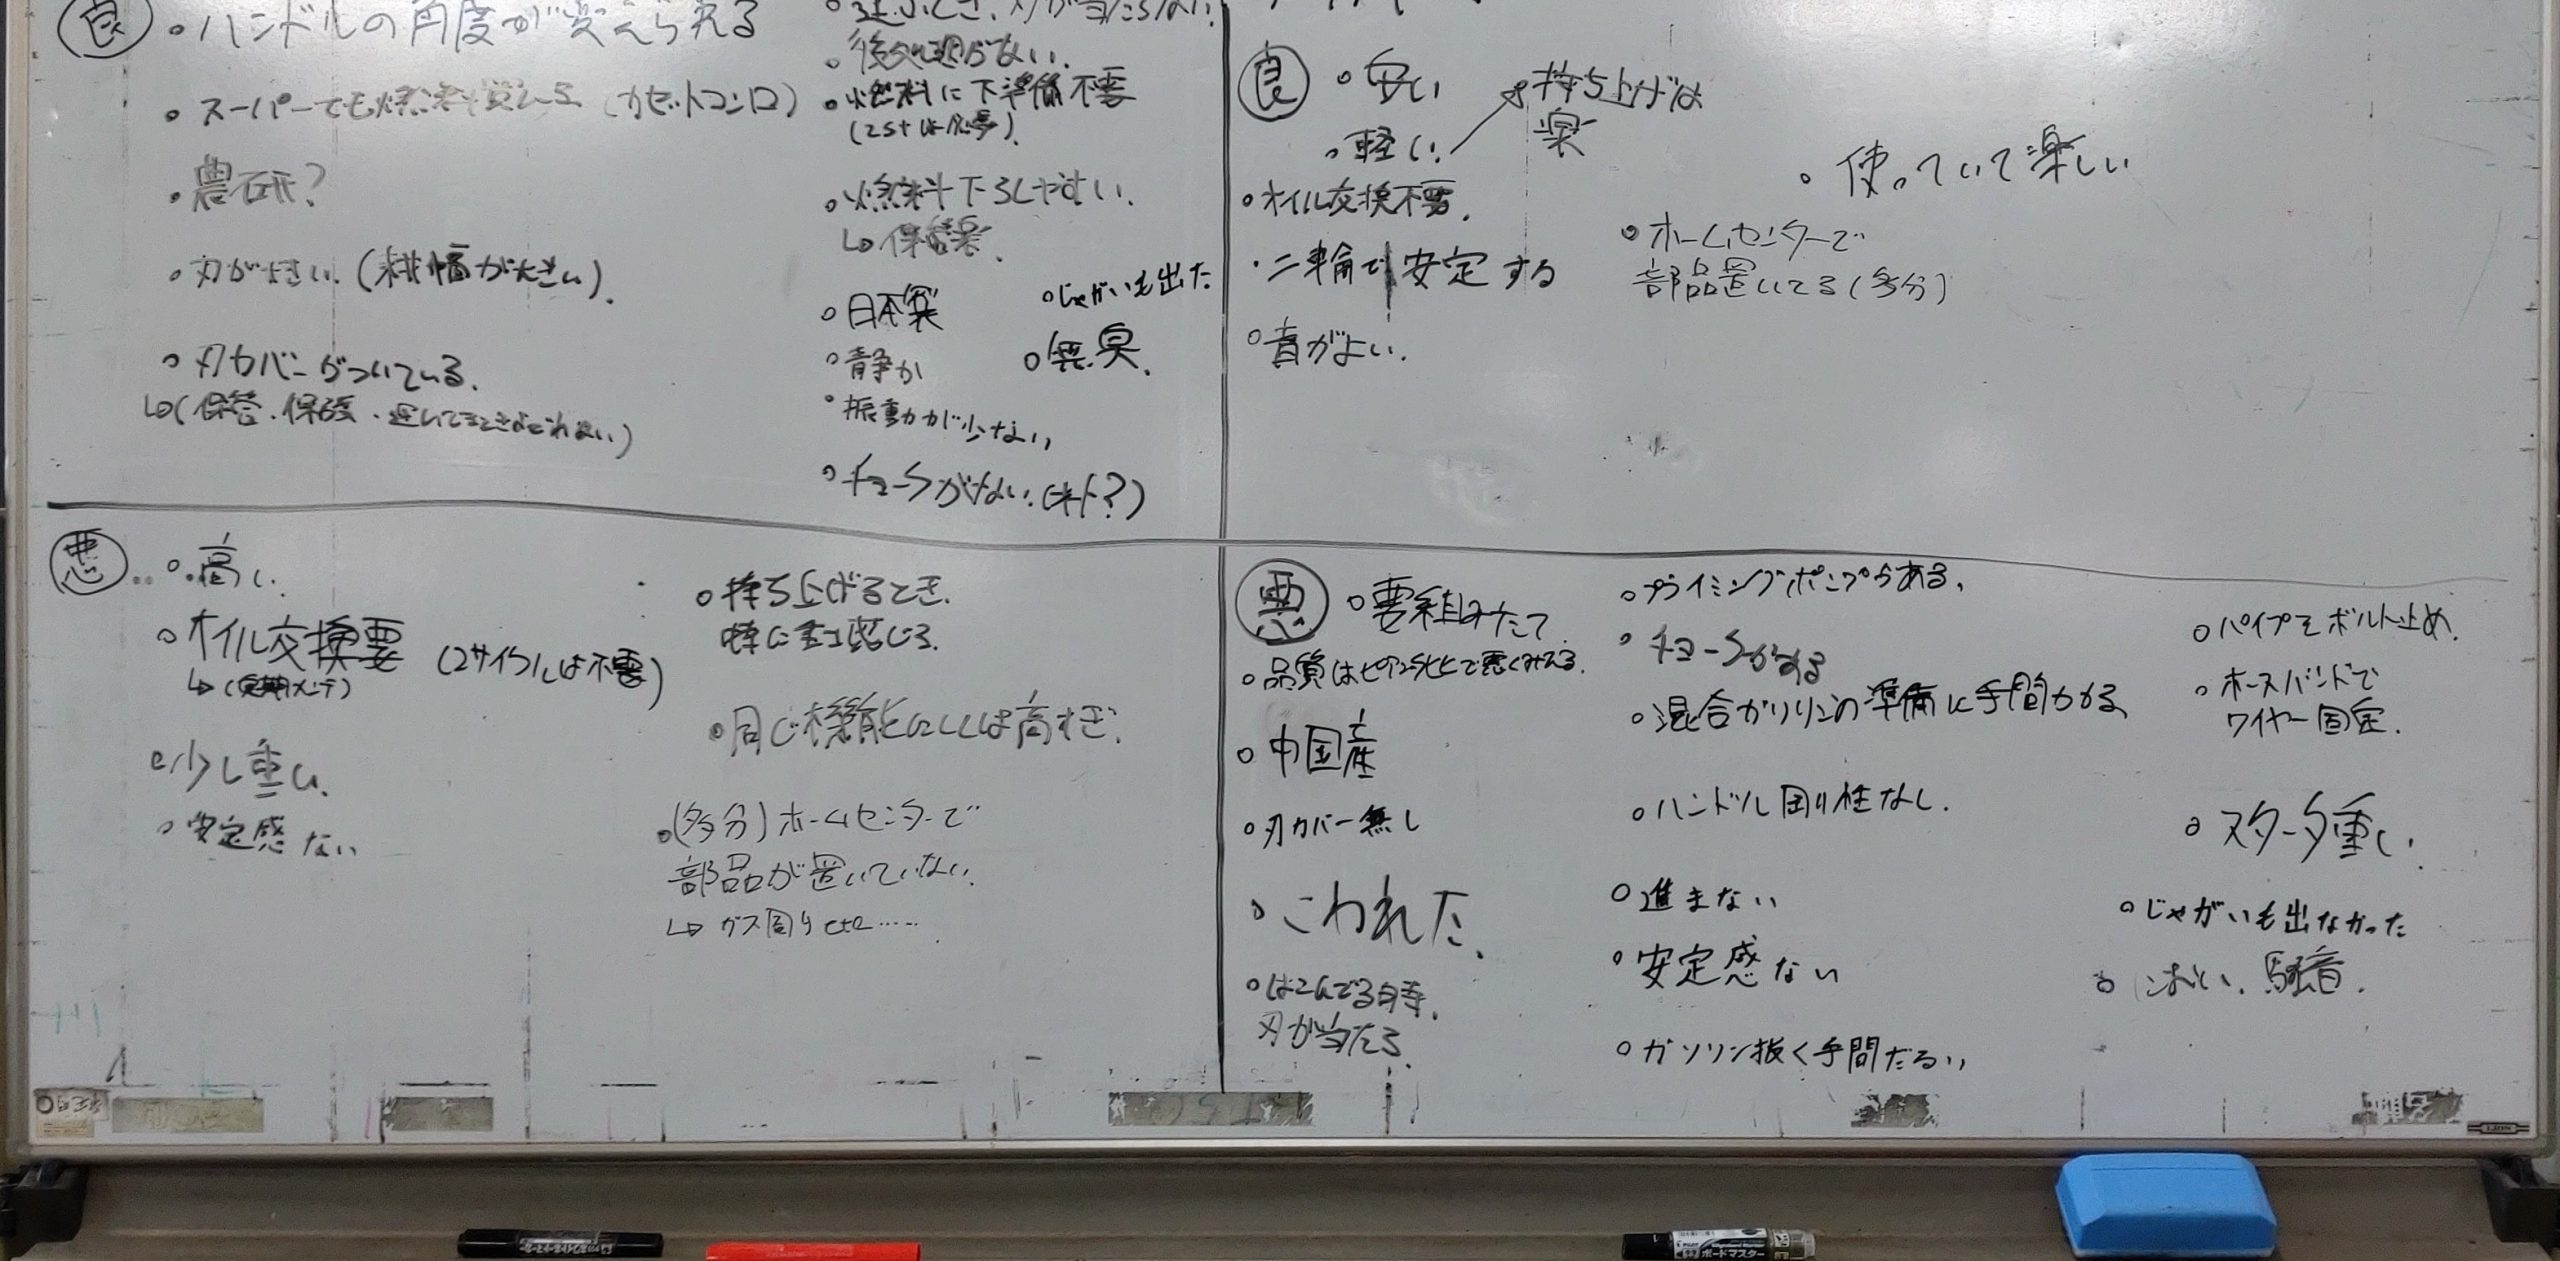 良
・ハンドルの角度が変えられる
・スーパーでも燃料買える (カセットコンロ)
・農研?
・刃が大きい (耕幅が大きい).
・刃カバーがついている.
↳(保管・保護・運んでるときよごれない)
・運ぶとき、刃が当たらない.
・後処理がない.
・燃料に下準備不要
(2stは必要).
・燃料下ろしやすい.
↳保管楽.
・日本製
・静か
・振動が少ない
・チョークがない.(オート?)
・じゃがいも出た
・無臭.
良
・安い
・軽い.
持ち上げは
楽
・オイル交換不要.
・二輪で安定する
・音がよい.
・使っていて楽しい
・ホームセンターで
部品置いてる(多分)
悪
・高い.
・オイル交換要 (2サイクルは不要)
↳(定期メンテ)
・少し重い.
・安定感ない
・持ち上げるとき.
特に重く感じる.
・同じ機能にしては高すぎ.
・(多分)ホームセンターで
部品が置いていない.
↳ガス周りetc……
悪
・要組みたて
・品質はピアンタと比で悪くみえる.
・中国産
・刃カバー無し
・こわれた.
・はこんでる時.
刃が当たる.
・プライミングポンプがある.
・チョークがある
・混合ガソリンの準備に手間かかる
・ハンドル剛性なし.
・進まない
・安定感ない
・ガソリン抜く手間だるい
・パイプをボルト止め.
・ホースバンドで
ワイヤー固定.
・スタータ重い.
・じゃがいも出なかった
・におい、騒音.
LION
PILOT
ボードマスター